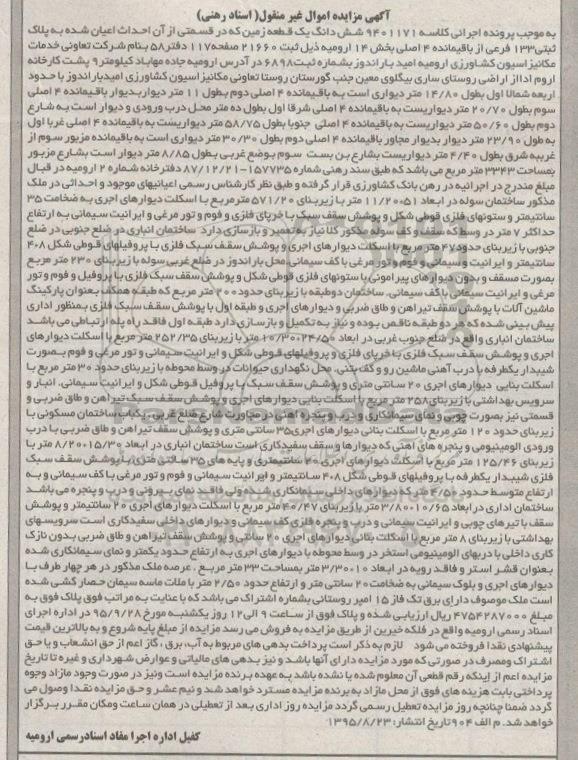 آگهی مزایده اموال غیر منقول( اسناد رهنی)
به موجب پرونده اجرائی کلاسه ۹۴۰۱۱۷۱ شش دانگ یک قطعه زمین که در قسمتی از آن احداث اعیان شده به پلاک
ثبتی۱۳۳ فرعی از باقیمانده ۴ اصلی بخش ۱۴ ارومیه ذیل ثبت ۲۱۶۶۰ صفحه۱۱۷ دفتر۵۸ بنام شرکت تعاونی خدمات
مکانیزاسیون کشاورزی ارومیه امید باراندوز بشماره ثبت۶۸۹۸ در آدرس ارومیه جاده مهاباد کیلومتر۹ پشت کارخانه
اروم ادا از اراضی روستای ساری بیگلوی معین جنب گورستان روستا تعاونی مکانیزاسیون کشاورزی امیدباراندوز با حدود
اربعه شمالا اول بطول ۱۴/۸۰ متر دیواری است به باقیمانده ۴ اصلی دوم بطول ۱۱ متر دیوار بدیوار باقیمانده ۴ اصلی
سوم بطول ۲۰/۷۰ متر دیواریست به باقیمانده ۴ اصلی شرقا اول بطول ده متر محل درب ورودی و دیوار است به شارع
دوم بطول ۵۰/۶۰ متر دیواریست به باقیمانده ۴ اصلی جنوبا بطول ۵۸/۷۵ متر دیواریست به باقیمانده ۴ اصلی غربا اول
به طول ۲۳/۹۰ متر دیوار بدیوار مجاور باقیمانده ۴ اصلی دوم بطول ۳۰/۳۰ متر دیواری است به باقیمانده مزبور سوم از
غریبه شرق بطول ۴/۴۰ متر دیواریست بشارع بن بست سوم بوضع غربی بطول ۸/۸۵ متر دیوار است بشارع مزبور
بمساحت ۳۳۴۳ متر مربع می باشد که طبق سند رهنی شماره ۱۵۷۷۳۵-۸۷/۱۲/۲۱ دفترخانه شماره ۲ ارومیه در قبال
مبلغ مندرج در اجرائیه در رهن بانک کشاورزی قرار گرفته و طبق نظر کارشناس رسمی اعیانیهای موجود و احداثی در ملک
مذکور ساختمان سوله در ابعاد ۵۱*۱۱/۲۰ متر با زیربنای ۵۷۱/۲۰ مترمربع با اسکلت دیوارهای اجری به ضخامت ۳۵
سانتیمتر و ستونهای فلزی قوطی شکل و پوشش سقف سبک با خرپای فلزی و فوم و تور مرغی و ایرانیت سیمانی به ارتفاع
حداکثر ۷ متر در وسط که سقف و کف سوله مذکور کلا نیاز به تعمیر و بازسازی دارد ساختمان انباری در ضلع جنوبی در ضلع
جنوبی با زیربنای حدود ۴۷ متر مربع با اسکلت دیوارهای اجری و پوشش سقف سبک فلزی با پروفیلهای قوطی شکل ۴*۸
سانتیمتر و ایرانیت و سیمانی و فوم و تور مرغی با کف سیمانی.محل باراندوز در ضلع غربی سوله با زیربنای ۲۳۰ متر مربع
بصورت مسقف و بدون دیوارهای پیرامونی با ستونهای فلزی قوطی شکل و پوشش سقف سبک فلزی با پروفیل و فوم و تور
مرغی و ایرانیت سیمانی با کف سیمانی. ساختمان دوطبقه با زیربنای حدود ۲۰۰ متر مربع که طبقه همکف بعنوان پارکینگ
ماشین آلات با پوشش سقف تیراهن و طاق ضربی و دیوارهای اجری و طبقه اول با پوشش سقف سبک فلزی بمنظور اداری
پیش بینی شده که هر دو طبقه ناقص بوده و نیاز به تکمیل و بازسازی دارد طبقه اول فاقد راه پله ارتباطی می باشد
ساختمان انباری واقع در ضلع جنوب غربی در ابعاد ۲۴/۵۰*۱۰/۳۰ متر با زیربنای ۲۵۲/۳۵ متر مربع با اسکلت دیوارهای
اجری و پوشش سقف سبک فلزی با خرپای فلزی و پروفیلهای قوطی شکل و ایرانیت سیمانی و تور مرغی و فوم بصورت
شیبدار یکطرفه با درب آهنی ماشین رو و کف بتنی. محل نگهداری حیوانات در وسط محوطه با زیربنای حدود ۳۰ متر مربع با
اسکلت بنایی دیوارهای اجری ۲۰ سانتی متری و پوشش سقف سبک با پروفیل قوطی شکل و ایرانیت سیمانی. انبار و
سرویس بهداشتی با زیربنای ۲۵۸ متر مربع با اسکلت بنایی دیوارهای اجری و پوشش سقف سبک تیراهن و طاق ضربی و
قسمتی نیز بصورت چوبی و نمای سیمانکاری و درب و پنجره اهنی در مجاورت شارع ضلع غربی. یکباب ساختمان مسکونی با
زیربنای حدود ۱۲۰ متر مربع با اسکلت بنائی دیوارهای اجری۳۵ سانتی متری و پوشش سقف تیراهن و طاق ضربی با درب
ورودی الومینیومی و پنجره های آهنی که دیوارها و سقف سفیدکاری است ساختمان انباری در ابعاد ۱۵/۳۰*۸/۲۰ متر با
زیربنای ۱۲۵/۴۶ متر مربع با اسکلت دیوارهای اجری ۲۰ سانتیمتری و پایه های ۳۵ سانتی متری با پوشش سقف سبک
فلزی شیبدار یکطرفه با پروفیلهای قوطی شکل ۴*۸ سانتیمتر و ایرانیت سیمانی و فوم و تور مرغی با کف سیمانی و به
ارتفاع متوسط حدود ۴/۵۰ متر که دیوارهای داخلی سیمانکاری شده ولی فاقد نمای بیرونی و درب و پنجره می باشد
ساختمان اداری در ابعاد ۱۰/۶۵*۳/۸۰ متر با زیربنای ۴۰/۴۷ متر مربع با اسکلت دیوارهای اجری ۲۰ سانتیمتر و پوشش
سقف با تیرهای چوبی و ایرانیت سیمانی و درب و پنجره فلزی کف سیمانی و دیوارهای داخلی سفیدکاری است سرویسهای
بهداشتی با زیربنای ۸ متر مربع با اسکلت بنائی دیوارهای اجری ۲۰ سانتی و پوشش سقف تیراهن و طاق ضربی بدون نازک
کاری داخلی با دربهای الومینیومی استخر در وسط محوطه با دیوارهای اجری به ارتفاع حدود یکمتر و نمای سیمانکاری شده
بعنوان قشر استر و فاقد رویه در ابعاد ۱۰*۳/۳۰ متر بمساحت ۳۳ متر مربع . عرصه ملک مذکور در هر چهار طرف با
دیوارهای اجری و بلوک سیمانی به ضخامت ۲۰ سانتی متر و ارتفاع حدود ۲/۵۰ متر با ملات ماسه سیمان حصار کشی شده
است ملک موصوف دارای برق تک فاز ۱۵ امپر روستائی بشماره اشتراک می باشد که با عنایت به مراتب فوق پلاک فوق به
مبلغ ۴۷۵۴۲۸۷۰۰۰ ریال ارزیابی شده و پلاک فوق از ساعت ۹ الی ۱۲ روز یکشنبه مورخ ۹۵/۹/۲۸ در اداره اجرای
اسناد رسمی ارومیه واقع در فلکه خیرین از طریق مزایده به فروش می رسد مزایده از مبلغ پایه شروع و به بالاترین قیمت
پیشنهادی نقدا فروخته می شود لازم به ذکر است پرداخت بدهی های مربوط به آب، برق ، گاز اعم از حق انشعاب و یا حق
اشتراک ومصرف در صورتی که مورد مزایده دارای آنها باشد و نیز بدهی های مالیاتی و عوارض شهرداری و غیره تا تاریخ
مزایده اعم از اینکه رقم قطعی آن معلوم شده یا نشده باشد به عهده برنده مزایده است ونیز در صورت وجود مازاد وجوه
پرداختی بابت هزینه های فوق از محل مازاد به برنده مزایده مسترد خواهد شد و نیم عشر و حق مزایده نقدا وصول می
گردد ضمنا چنانچه روز مزایده تعطیل رسمی گردد مزایده روز اداری بعد از تعطیلی در همان ساعت ومکان مقرر برگزار
خواهد شد. م الف ۹۰۴ تاریخ انتشار: ۱۳۹۵/۸/۲۳
کفیل اداره اجرا مفاد اسنادرسمی ارومیه